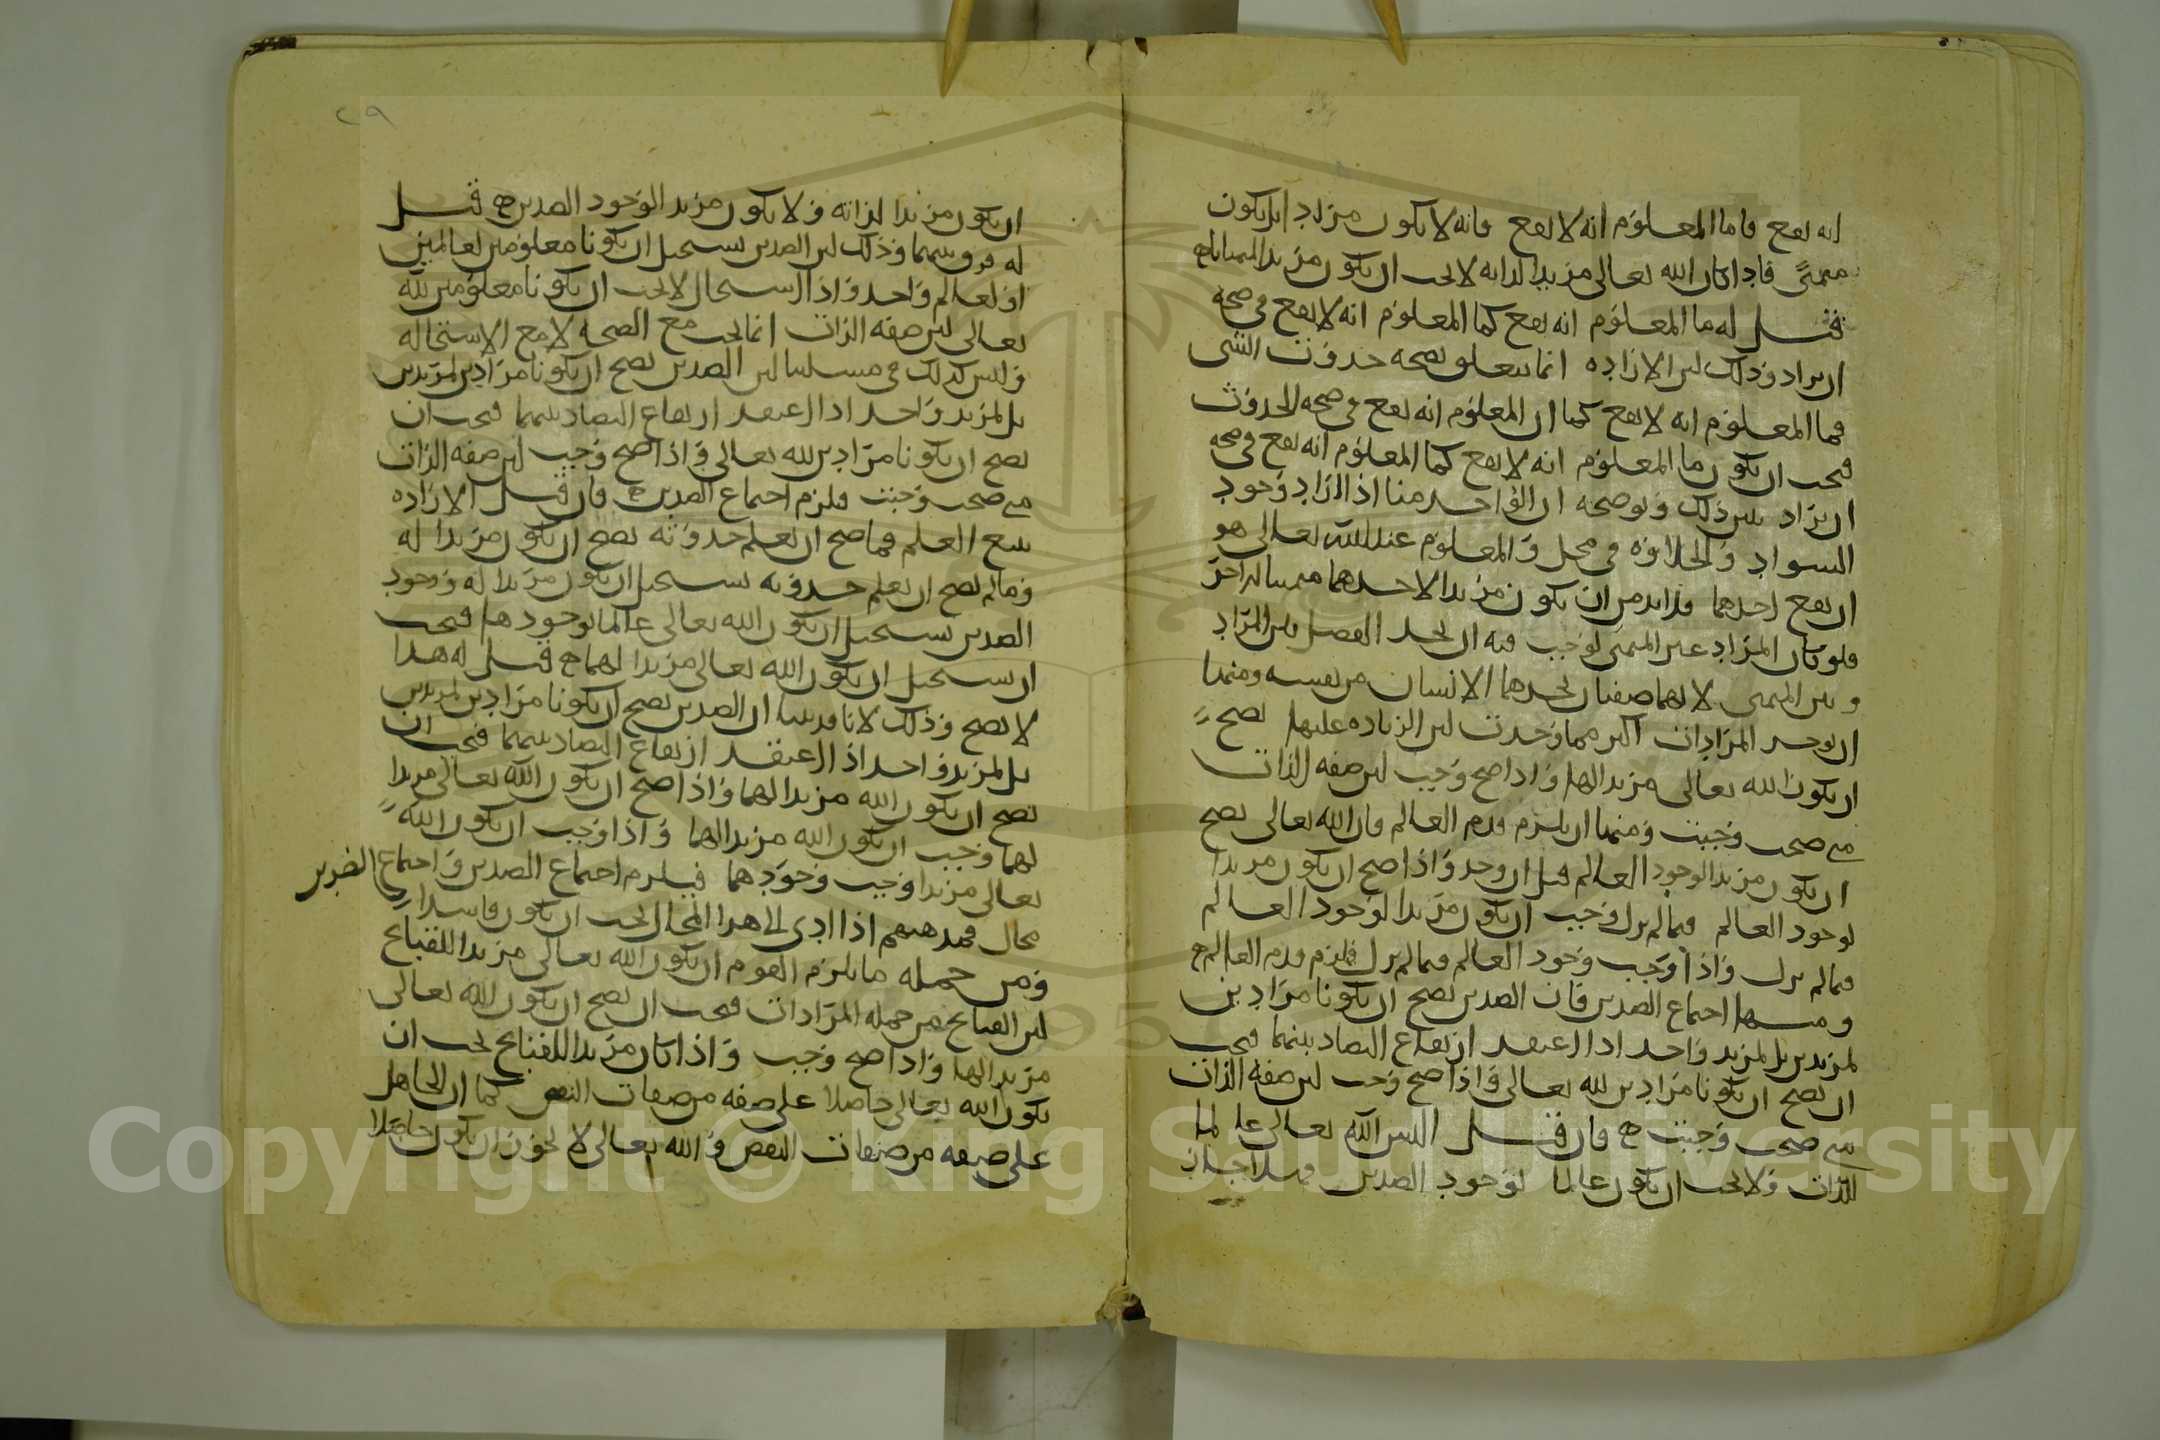 انه يقع فاما المعلوم انه لا يقع فانه لا يكون مراد ابل يكون
متمنى فاذا كان الله تعالى مريدا لذاته لا يجب ان يكون مريدا للمتمنيات
قيل له ما المعلوم انه يقع كما المعلوم انه لا يقع في صحة
ان يراد وذلك لان الارادة انما تتعلق بصحة حدوث الشي
فما المعلوم انه لا يقع كما ان المعلوم انه يقع في صحة الحدوث
فيجب ان يكون ما المعلوم انه لا يقع كما المعلوم انه يقع في صحة
ان يراد يبين ذلك ويوضحه ان الواحد منا اذا اراد وجود
السواد والحلاوة في محل والمعلوم عند الله تعالى هو
ان يقع احدهما فلابد من ان يكون مريدا لاحدهما متمنيا للاخر
فلو كان المراد غير المتمنى لوجب فيه ان يجد الفصل بين المراد
وبين المتمنى لانهما صفتان يجدهما الانسان من نفسه ومنها
ان يوجد المرادات اكثر مما وجدت لان الزيادة عليها يصح
ان يكون الله تعالى مريدا لها واذا صح وجب لان صفة الذات
متى صحت وجبت ومنها ان يلزم قدم العالم فان الله تعالى يصح
ان يكون مريدا لوجود العالم قبل ان وجد واذا صح ان يكون مريدا
لوجود العالم فيما لم يزل وجب ان يكون مريدا لوجود العالم
فيما لم يزل واذا وجب وجود العالم فيما لم يزل فيلزم قدم العالم
ومنها اجتماع الضدين فان الضدين يصح ان يكونا مرادين
لمريدين بل لمريد واحد اذا اعتقد ارتفاع التضاد بينهما فيجب
ان يصح ان يكونا مرادين لله تعالى واذا صح وجب لان صفة الذات
متى صحت وجبت فان قيل اليس الله تعالى عالما
للذات ولا يجب ان يكون عالما لوجود الضدين فهلا جاز
ان يكون مريدا لذاته ولا يكون مريدا لوجود الضدين قيل
له فرق بينهما وذلك لان الضدين يستحيل ان يكونا معلومين لعالمين
او لعالم واحد واذا استحال لا يجب ان يكونا معلومين لله
تعالى لان صفة الذات انما تجب مع الصحة لا مع الاستحالة
وليس كذلك في مسئلتنا لان الضدين يصح ان يكونا مرادين لمريدين
بل لمريد واحد اذا اعتقد ارتفاع التضاد بينهما فيجب ان
يصح ان يكونا مرادين لله تعالى واذا صح وجب لان صفة الذات
متى صحت وجبت فلزم اجتماع الضدين فان قيل الارادة
تتبع العلم فما صح ان يعلم حدوثه يصح ان يكون مريدا له
وما لم يصح ان يعلم حدوثه يستحيل ان يكون مريدا له ووجود
الضدين يستحيل ان يكون الله تعالى عالما بوجودهما فيجب
ان يستحيل ان يكون الله تعالى مريدا لهما قيل له هذا
لا يصح وذلك لانا قد بينا ان الضدين يصح ان يكونا مرادين لمريدين
بل لمريد واحد اذا اعتقد ارتفاع التضاد بينهما فيجب ان
يصح ان يكون الله مريدا لهما واذا صح ان يكون الله تعالى مريدا
لهما وجب ان يكون الله مريدا لهما واذا وجب ان يكون الله
تعالى مريدا وجب وجودهما فيلزم اجتماع الضدين واجتماع الضدين
محال فمذهبهم اذا ادى الى هذا المحال يجب ان يكون فاسدا
ومن جملة ما يلزم القوم ان يكون الله تعالى مريدا للقبايح
لان القبايح من جملة المرادات فيجب ان يصح ان يكون الله تعالى
مريدا لها واذا صح وجب واذا كان مريدا للقبايح يجب ان
يكون الله تعالى حاصلا على صفة من صفات النقص كما ان الجاهل
على صفة من صفات النقص والله تعالى لا يجوز ان يكون حاصلا
Copyright © King Saud University